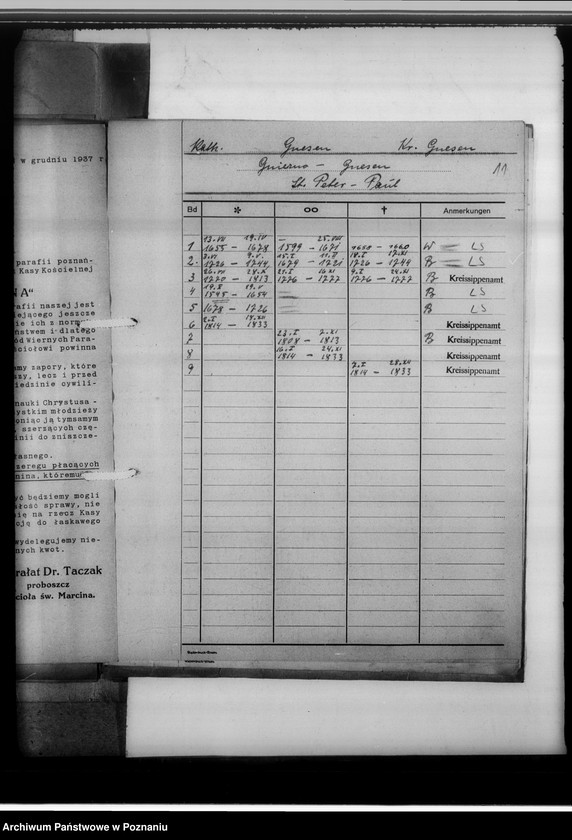 w grudniu 1937 r
parafii poznań-
Kasy Kościelnej
NA"
rafii naszej jest
iejącego jeszcze
ie ich z norm
ństwem i dlatego
ód Wiernych Para-
ściołowi powinna
amy zapory, które
azy, lecz i przed
iedzinie cywili-
nauki Chrystusa -
ystkim młodzieży
oniąc ją tymsamym
szerzących czę-
inii do zniszcze-
asnego.
zeregu płacących
nina, któremu
yć będziemy mogli
ałość sprawy, nie
ię na rzecz Kasy
cją do łaskawego
wydelegujemy nie-
nych kwot.
rałat Dr. Taczak
proboszcz
cioła św. Marcina.
Kath. Gnesen Kr. Gnesen
Gniezno - Gnesen 11
St. Peter - Paul
Bd * oo † Anmerkungen
13.VII 19.IV - 25.VIII
1 1655 - 1678 1599 - 1671 1660 - 1660 W LS
2 1726 - 1744 1679 - 1721 1726 - 1749 B LS
3 1770 - 1813 1776 - 1777 1776 - 1777 B Kreissippenamt
19.X 19.V
4 1595 - 1654 B LS
5 1678 - 1726 B LS
6 1814 - 1833 Kreissippenamt
7 1808 - 1813 B Kreissippenamt
16.I 24.XI
8 1814 - 1833 Kreissippenamt
9 1814 - 1833 Kreissippenamt
Archiwum Państwowe w Poznaniu